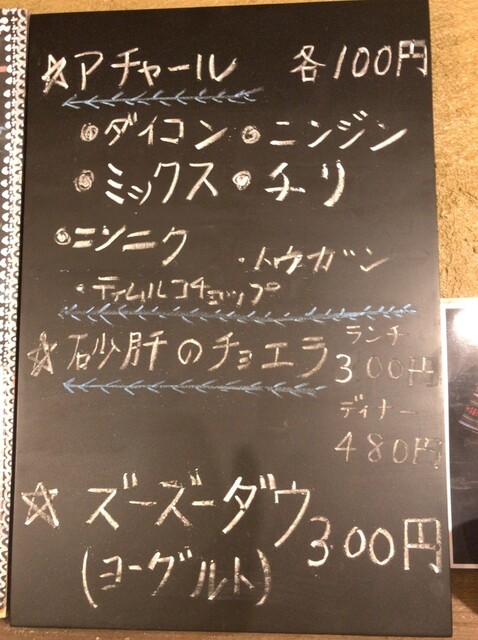 ☆アチャール 各100円
・ダイコン ・ニンジン
・ミックス ・チリ
・ニンニク ・トウガン
・ティムルコチョップ
☆砂肝のチョエラ ランチ 300円
ディナー 480円
☆ズーズーダウ 300円
(ヨーグルト)